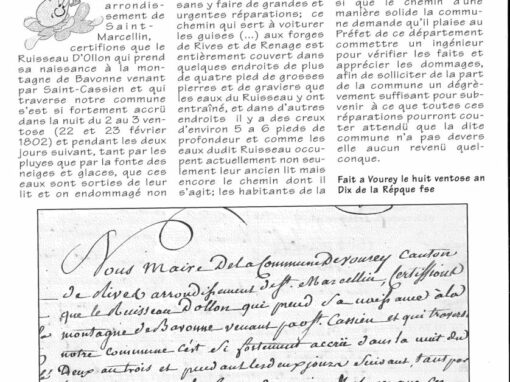 arrondis-
sement de
Saint-
Marcellin,
certifions que le
Ruisseau D'Ollon qui prend
sa naissance à la mon-
tagne de Bavonne venant
par Saint-Cassien et qui
traverse notre commune
s'est si fortement accrû
dans la nuit du 2 au 3 ven-
tose (22 et 23 février
1802) et pendant les deux
jours suivant, tant par les
pluyes que par la fonte des
neiges et glaces, que ces
eaux sont sorties de leur
lit et on endommagé non
sans y faire de grandes et
urgentes réparations; ce
chemin qui sert à voiturer
les guises (...) aux forges
de Rives et de Renage est
entièrement couvert dans
quelques endroits de plus
de quatre pied de grosses
pierres et de graviers que
les eaux du Ruisseau y ont
entraîné, et dans d'autres
endroits il y a des creux
d'environ 5 a 6 pieds de
profondeur et comme les
eaux dudit Ruisseau occu-
pent actuellement non seu-
lement leur ancien lit mais
encore le chemin dont il
s'agit; les habitants de la
si que le chemin d'une
manière solide la commu-
ne demande qu'il plaise au
Préfet de ce département
commettre un ingénieur
pour vérifier les faits et
apprécier les dommages,
afin de solliciter de la part
de la commune un dégrè-
vement suffisant pour sub-
venir à ce que toutes ces
réparations pourront cou-
ter attendu que la dite
commune n'a pas devers
elle aucun revenu quel-
conque.
Fait a Vourey le huit ventose an
Dix de la Répque fse
Nous Maire De la Commune De vourey Canton
de Rives arrondissement de St. Marcellin, Certiffions
que le Ruisseau Dollon qui prend sa naissance à la
montagne de Bavonne venant par St. Cassien et qui traverse
notre commune s'est si fortement accrû dans la nuit du
Deux au trois et pendant les deux jours suivant, tant par